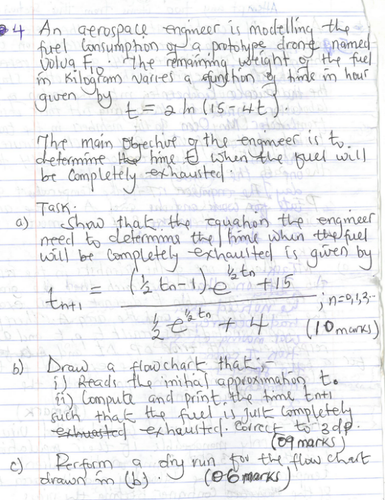 4 An aerospace engineer is modelling the
fuel consumption of a prototype drone named
Volva F10. The remaining weight of the fuel
in kilogram varies a function of time in hour
given by
t = 2 ln (15 - 4t).
The main Objective of the engineer is to
determine the time t when the fuel will
be completely exhausted.
Task.
a) Show that the equation the engineer
need to determine the time when the fuel
will be completely exhausted is given by
tn+1 = ((½ tn - 1) e^½tn + 15) / (½ e^½tn + 4) ; n=0,1,3,..
(10 marks)
b) Draw a flowchart that;
i) Reads the initial approximation to.
ii) Compute and print the time tn+1
such that the fuel is just completely
exhausted. correct to 3dp.
(09 marks)
c) Perform a dry run for the flow chart
drawn in (b). (06 marks)